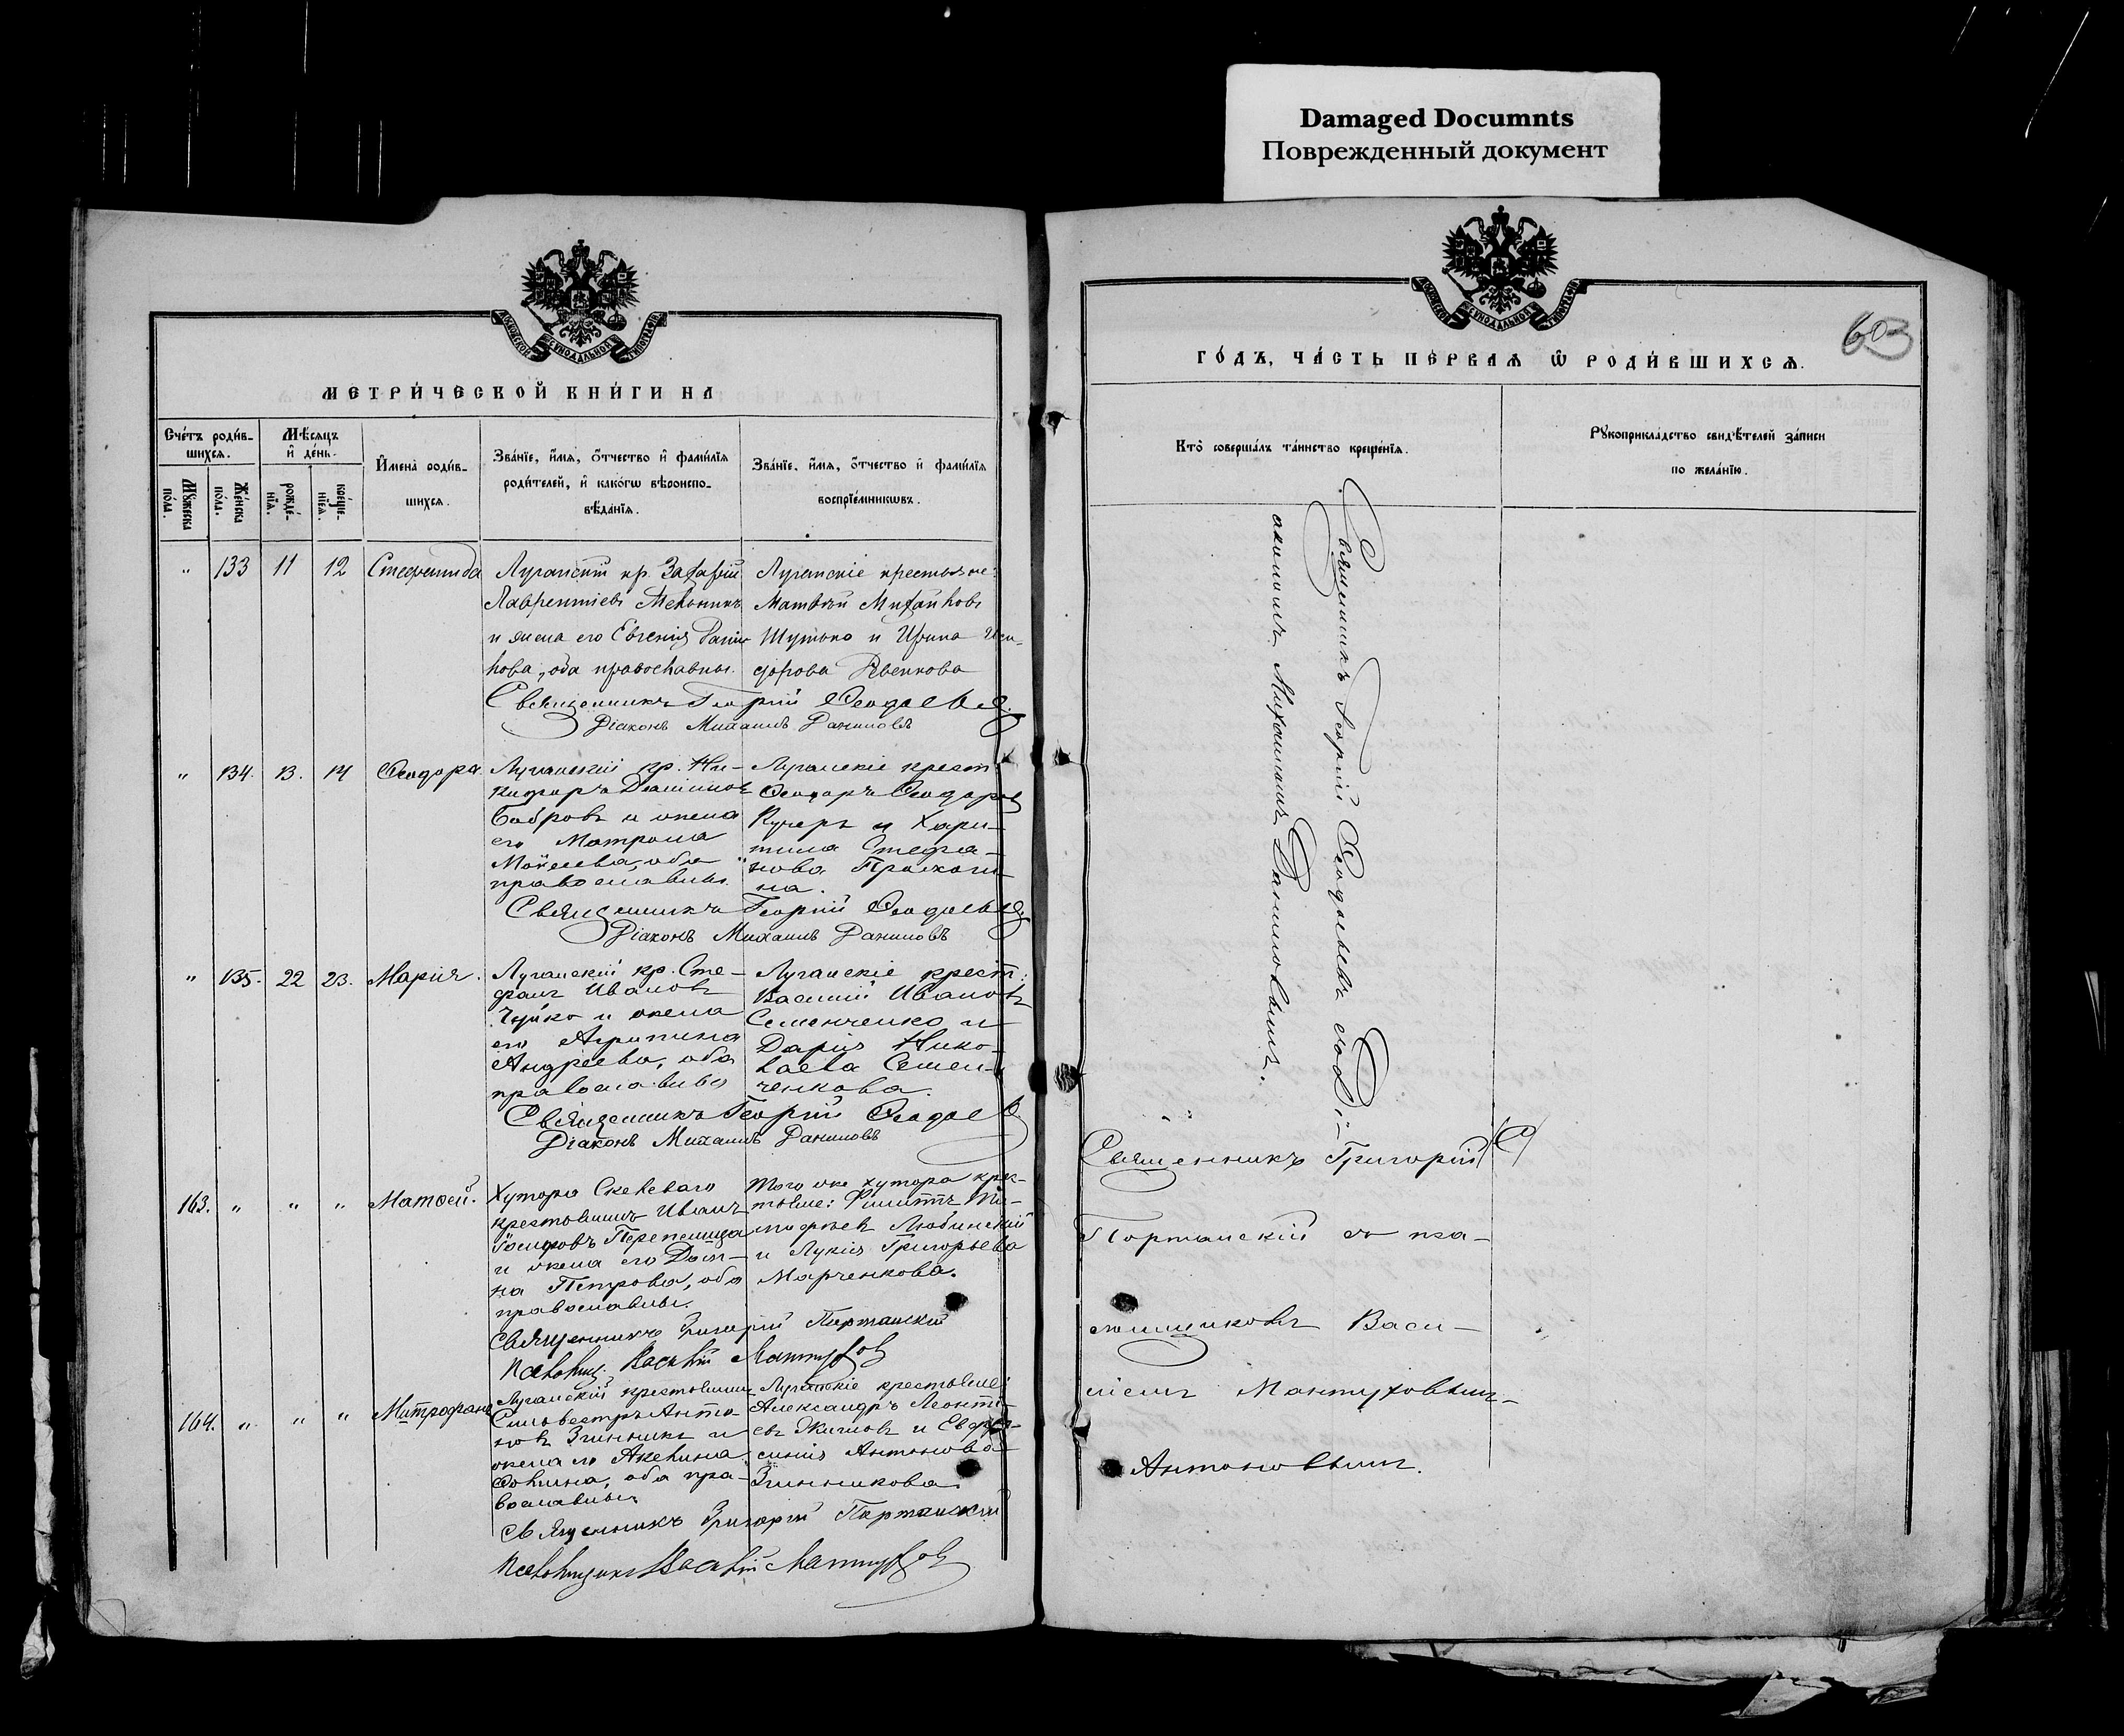 Damaged Documnts
Поврежденный документ
МОСКОВСКОЙ СѴНОДАЛЬНОЙ ТИПОГРАФІИ
МЕТРИ́ЧЕСКОЙ КНИ́ГИ НА
Сче́тъ роди́в-
шихсѧ.
Мѣ́сѧцъ
и҆ де́нь.
Мꙋ́жеска
по́ла.
Же́нска
по́ла.
рожде́-
нїѧ.
креще́-
нїѧ.
И҆мена̀ роди́в-
шихсѧ.
Зва́нїе, и҆́мѧ, ѻ҆́тчество и҆ фами́лїѧ
роди́телей, и҆ како́гѡ вѣроиспо-
вѣ́данїѧ.
Зва́нїе, и҆́мѧ, ѻ҆́тчество и҆ фами́лїѧ
воспрїе́мникѡвъ.
" 133 11 12
Луганскій кр. Захарій
Лаврентіевъ Мельникъ
и жена его Евгенія
нова, оба православны.
Луганскіе крестьяне:
Матвѣй Михайловъ
Шутько и Ирина Иси-
дорова Ревенкова
Священникъ Георгій Ѳеодосьевъ
Діаконъ Михаилъ Даниловъ
" 134. 13. 14 Ѳеодора.
Луганскій кр. Ни-
кифоръ
Бобровъ и жена
его Матрона
Моисеева, оба
православны.
Луганскіе крест:
Ѳеодоръ Ѳеодоровъ
Кучеръ и Хари-
тина Стефа-
нова
на.
Священникъ Георгій Ѳеодосьевъ
Діаконъ Михаилъ Даниловъ
" 135. 22 23. Марія.
Луганскій кр. Сте-
фанъ Ивановъ
Чуйко и жена
его Агрипина
Андреева, оба
православны
Луганскіе крест:
Василій Ивановъ
Семенченко и
Дарія Нико-
лаева Семен-
ченкова.
Священникъ Георгій Ѳеодосьевъ
Діаконъ Михаилъ Даниловъ
163. " " " Матѳей.
Хутора Скелеваго
крестьянинъ Иванъ
Іосифовъ Перепелица
и жена его Дом-
на Петрова, оба
православны.
Того же хутора крес-
тьяне: Филиппъ Ти-
мофѣевъ Любинскій
и Лукія Григорьева
Марченкова.
Священникъ Григорій Портанскій
Псаломщ. Василій Мантуховъ
164. " " " Митрофанъ
Луганскій крестьянинъ
Сильвестръ Анто-
новъ Згинникъ и
жена его Акелина
оба пра-
вославны.
Луганскіе крестьяне:
Александръ Леонті-
евъ и Евфро-
синія Антонова
Згинникова.
Священникъ Григорій Портанскій
Псаломщикъ Василій Мантуховъ
603
ГО́ДЪ, ЧА́СТЬ ПЕ́РВАѦ Ѿ РОДИ́ВШИХСѦ.
Кто̀ соверша́лъ та́инство креще́нїѧ.
Рꙋкоприкла́дство свидѣ́телей за́писи
по жела́нїю.
Священникъ Георгій Ѳеодосьевъ съ Ді-
акономъ Михаиломъ Даниловымъ.
Священникъ Григорій
Портанскій съ пса-
ломщикомъ Васи-
ліемъ Мантуховымъ
Антоновымъ.